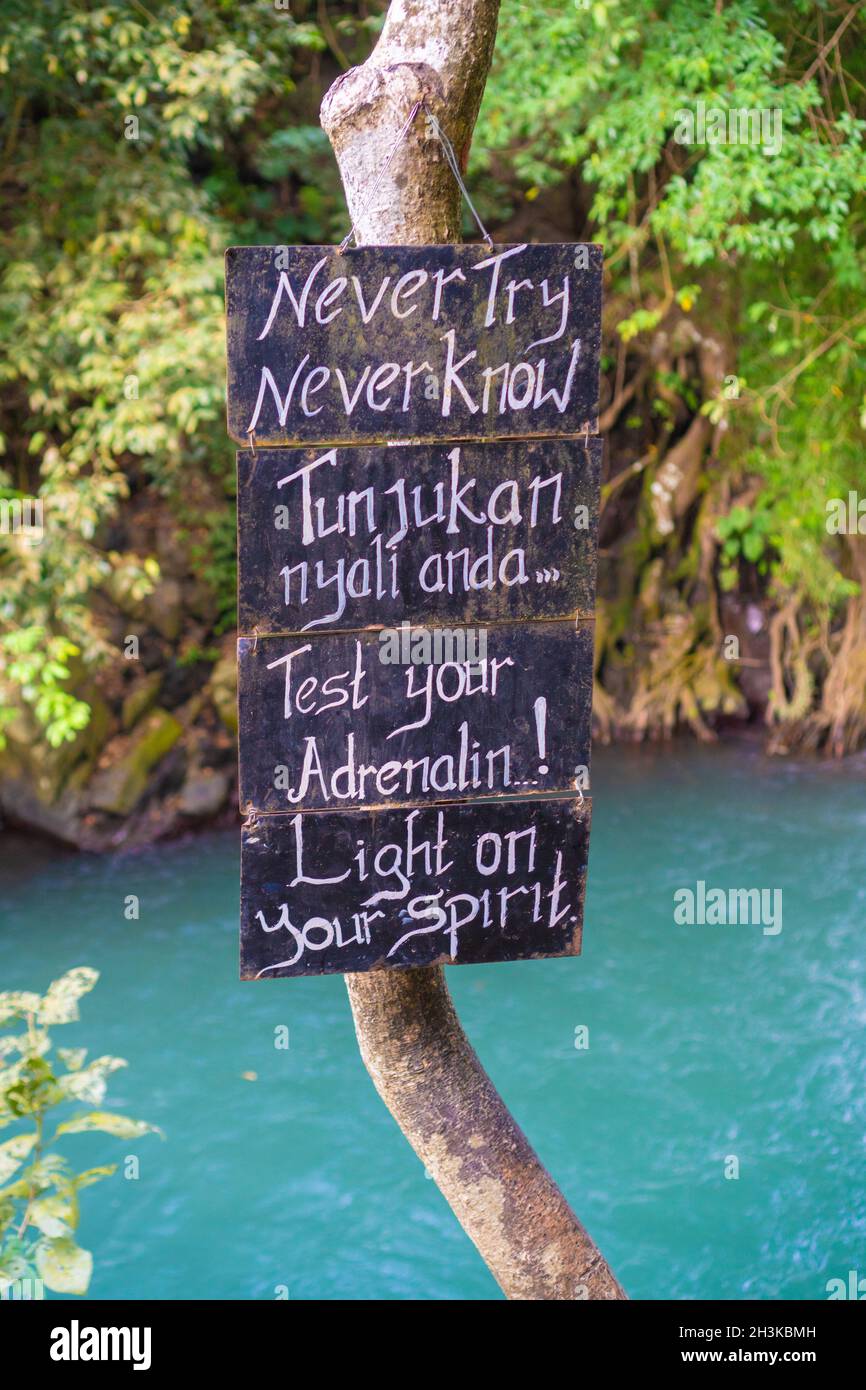 Never Try
Never Know
Tunjukan
nyali anda...
Test your
Adrenalin...!
Light on
your spirit.
alamy
Image ID: 2H3KBMH
www.alamy.com